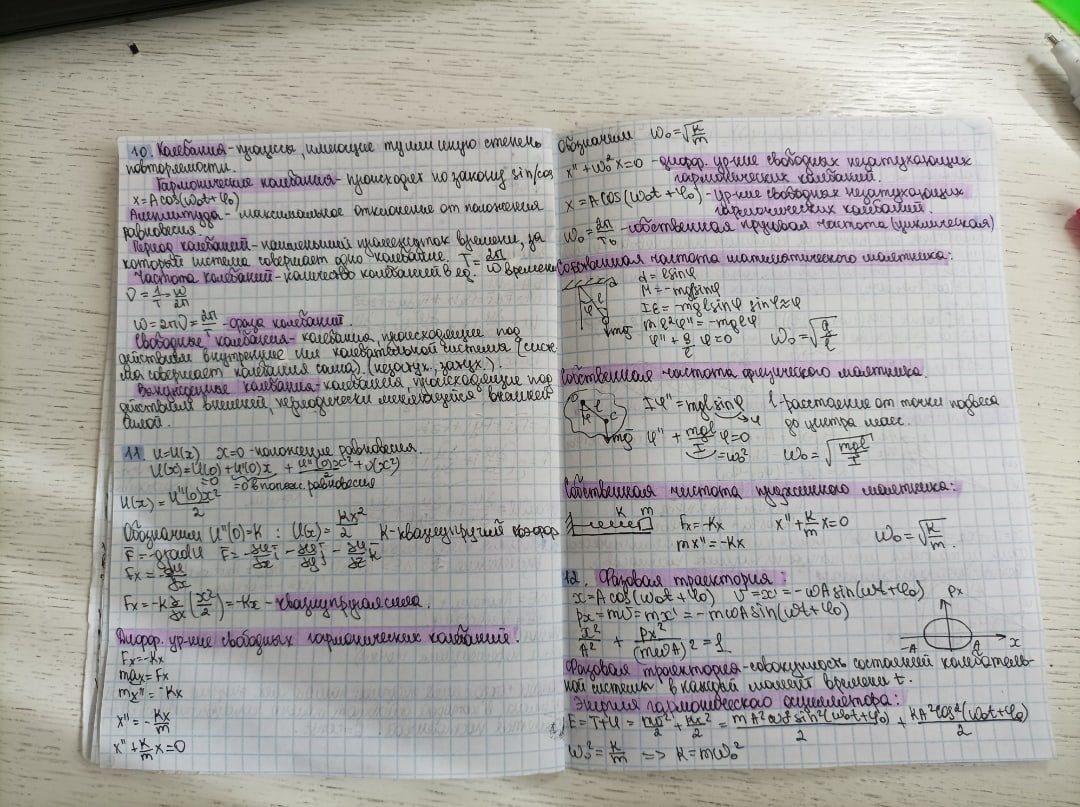 10. Колебания - процессы, имеющие ту или иную степень
повторяемости.
Гармонические колебания - происходят по закону sin/cos
x = A cos(ω₀t + φ₀)
Амплитуда - максимальное отклонение от положения
равновесия
Период колебаний - наименьший промежуток времени, за
который система совершает одно колебание. T = 2π/ω
Частота колебаний - количество колебаний в ед. времени
ν = 1/T = ω/2π
ω = 2πν = 2π/T - фаза колебаний.
Свободные колебания - колебания, происходящие под
действием внутренние сил колебательной системы (сист-
ма совершает колебания сама) (незатух., затух.).
Вынужденные колебания - колебания, происходящие под
действием внешней, периодически меняющейся внешней
силой.
11. U = U(x) x = 0 - положение равновесия.
U(x) = U(0) + U'(0)x + U''(0)x²/2 + ν(x²)
=0 =0 в полож. равновесия
U(x) = U''(0)x²/2
Обозначим U''(0) = k : U(x) = kx²/2 k - квазиупругий коэффр
F̄ = -gradU F̄ = -∂U/∂x ī - ∂U/∂y j̄ - ∂U/∂z k̄
Fx = -∂U/∂x
Fx = -k ∂/∂x (x²/2) = -kx - квазиупругая сила.
Диффр. ур-ние свободных гармонических колебаний:
Fx = -kx
max = Fx
mx'' = -kx
x'' = -kx/m
x'' + k/m x = 0
Обозначим ω₀ = √(k/m)
x'' + ω₀²x = 0 - диффр. ур-ние свободных незатухающих
гармонических колебаний.
x = A cos(ω₀t + φ₀) - ур-ние свободных незатухающих
гармонических колебаний.
ω₀ = 2π/T₀ - собственная круговая частота (циклическая)
Собственная частота математического маятника:
d = l sinφ
M = -mgl sinφ
Iε = -mgl sinφ sinφ ≈ φ
ml²φ'' = -mglφ
φ'' + g/l φ = 0 ω₀ = √(g/l)
mg
Собственная частота физического маятника
Iφ'' = mgl sinφ l - расстояние от точки подвеса
φ до центра масс.
mg φ'' + mgl/I φ = 0 ω₀ = √(mgl/I)
= ω₀²
Собственная частота пружинного маятника:
k m Fx = -kx x'' + k/m x = 0
mx'' = -kx ω₀ = √(k/m).
12. Фазовая траектория:
x = A cos(ωt + φ₀) v = x' = -ωA sin(ωt + φ₀) px
px = mv = mx' = -mωA sin(ωt + φ₀)
x²/A² + px²/(mωA)² = 1 -A A x
Фазовая траектория - совокупность состояний колебатель-
ной системы в каждый момент времени t.
Энергия гармонического осциллятора:
E = T + U = mv²/2 + kx²/2 = mA²ω₀² sin²(ω₀t + φ₀)/2 + kA² cos²(ω₀t + φ₀)/2
ω₀² = k/m => k = mω₀²